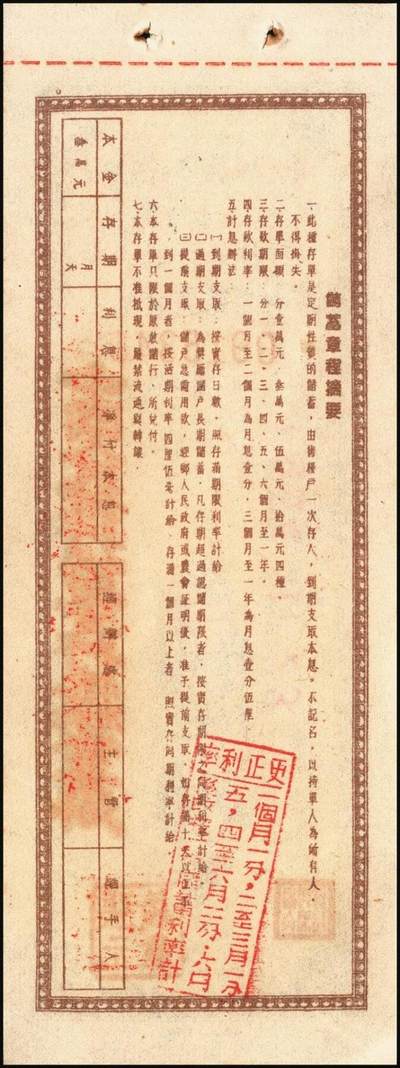 儲蓄章程摘要
一、此種存單是定期性質的儲蓄，由儲蓄戶一次存入，到期支取本息，不記名，以持單人為所有人，
不得掛失。
二、存單面額：分壹萬元、叁萬元、伍萬元、拾萬元四種。
三、存款期限：分一、二、三、四、五、六個月至一年。
四、存款利率：一個月至二個月為月息壹分，三個月至一年為月息壹分伍厘。
五、計息辦法
(一)到期支取：按實存日數，照存滿期限利率計給
(二)過期支取：為獎勵儲戶長期儲蓄，凡存期超過認儲期限者，按實存期限之同期利率計給
(三)提前支取：儲戶急需用款，經鄉人民政府或農會証明後，准予提前支取，如存儲十天以上不
到一個月者，按活期利率四厘伍毫計給，存滿一個月以上者 照實存同期利率計給
六、本存單只限於原存儲行、所兌付。
七、本存單不准抵現，嚴禁流通與轉讓。
本金 存期 利息 淨付本息
叁萬元 月 天
主管 經手人
更正利率
一個月一分，二至三月一分
五，四至六月二分，六個月
利率計